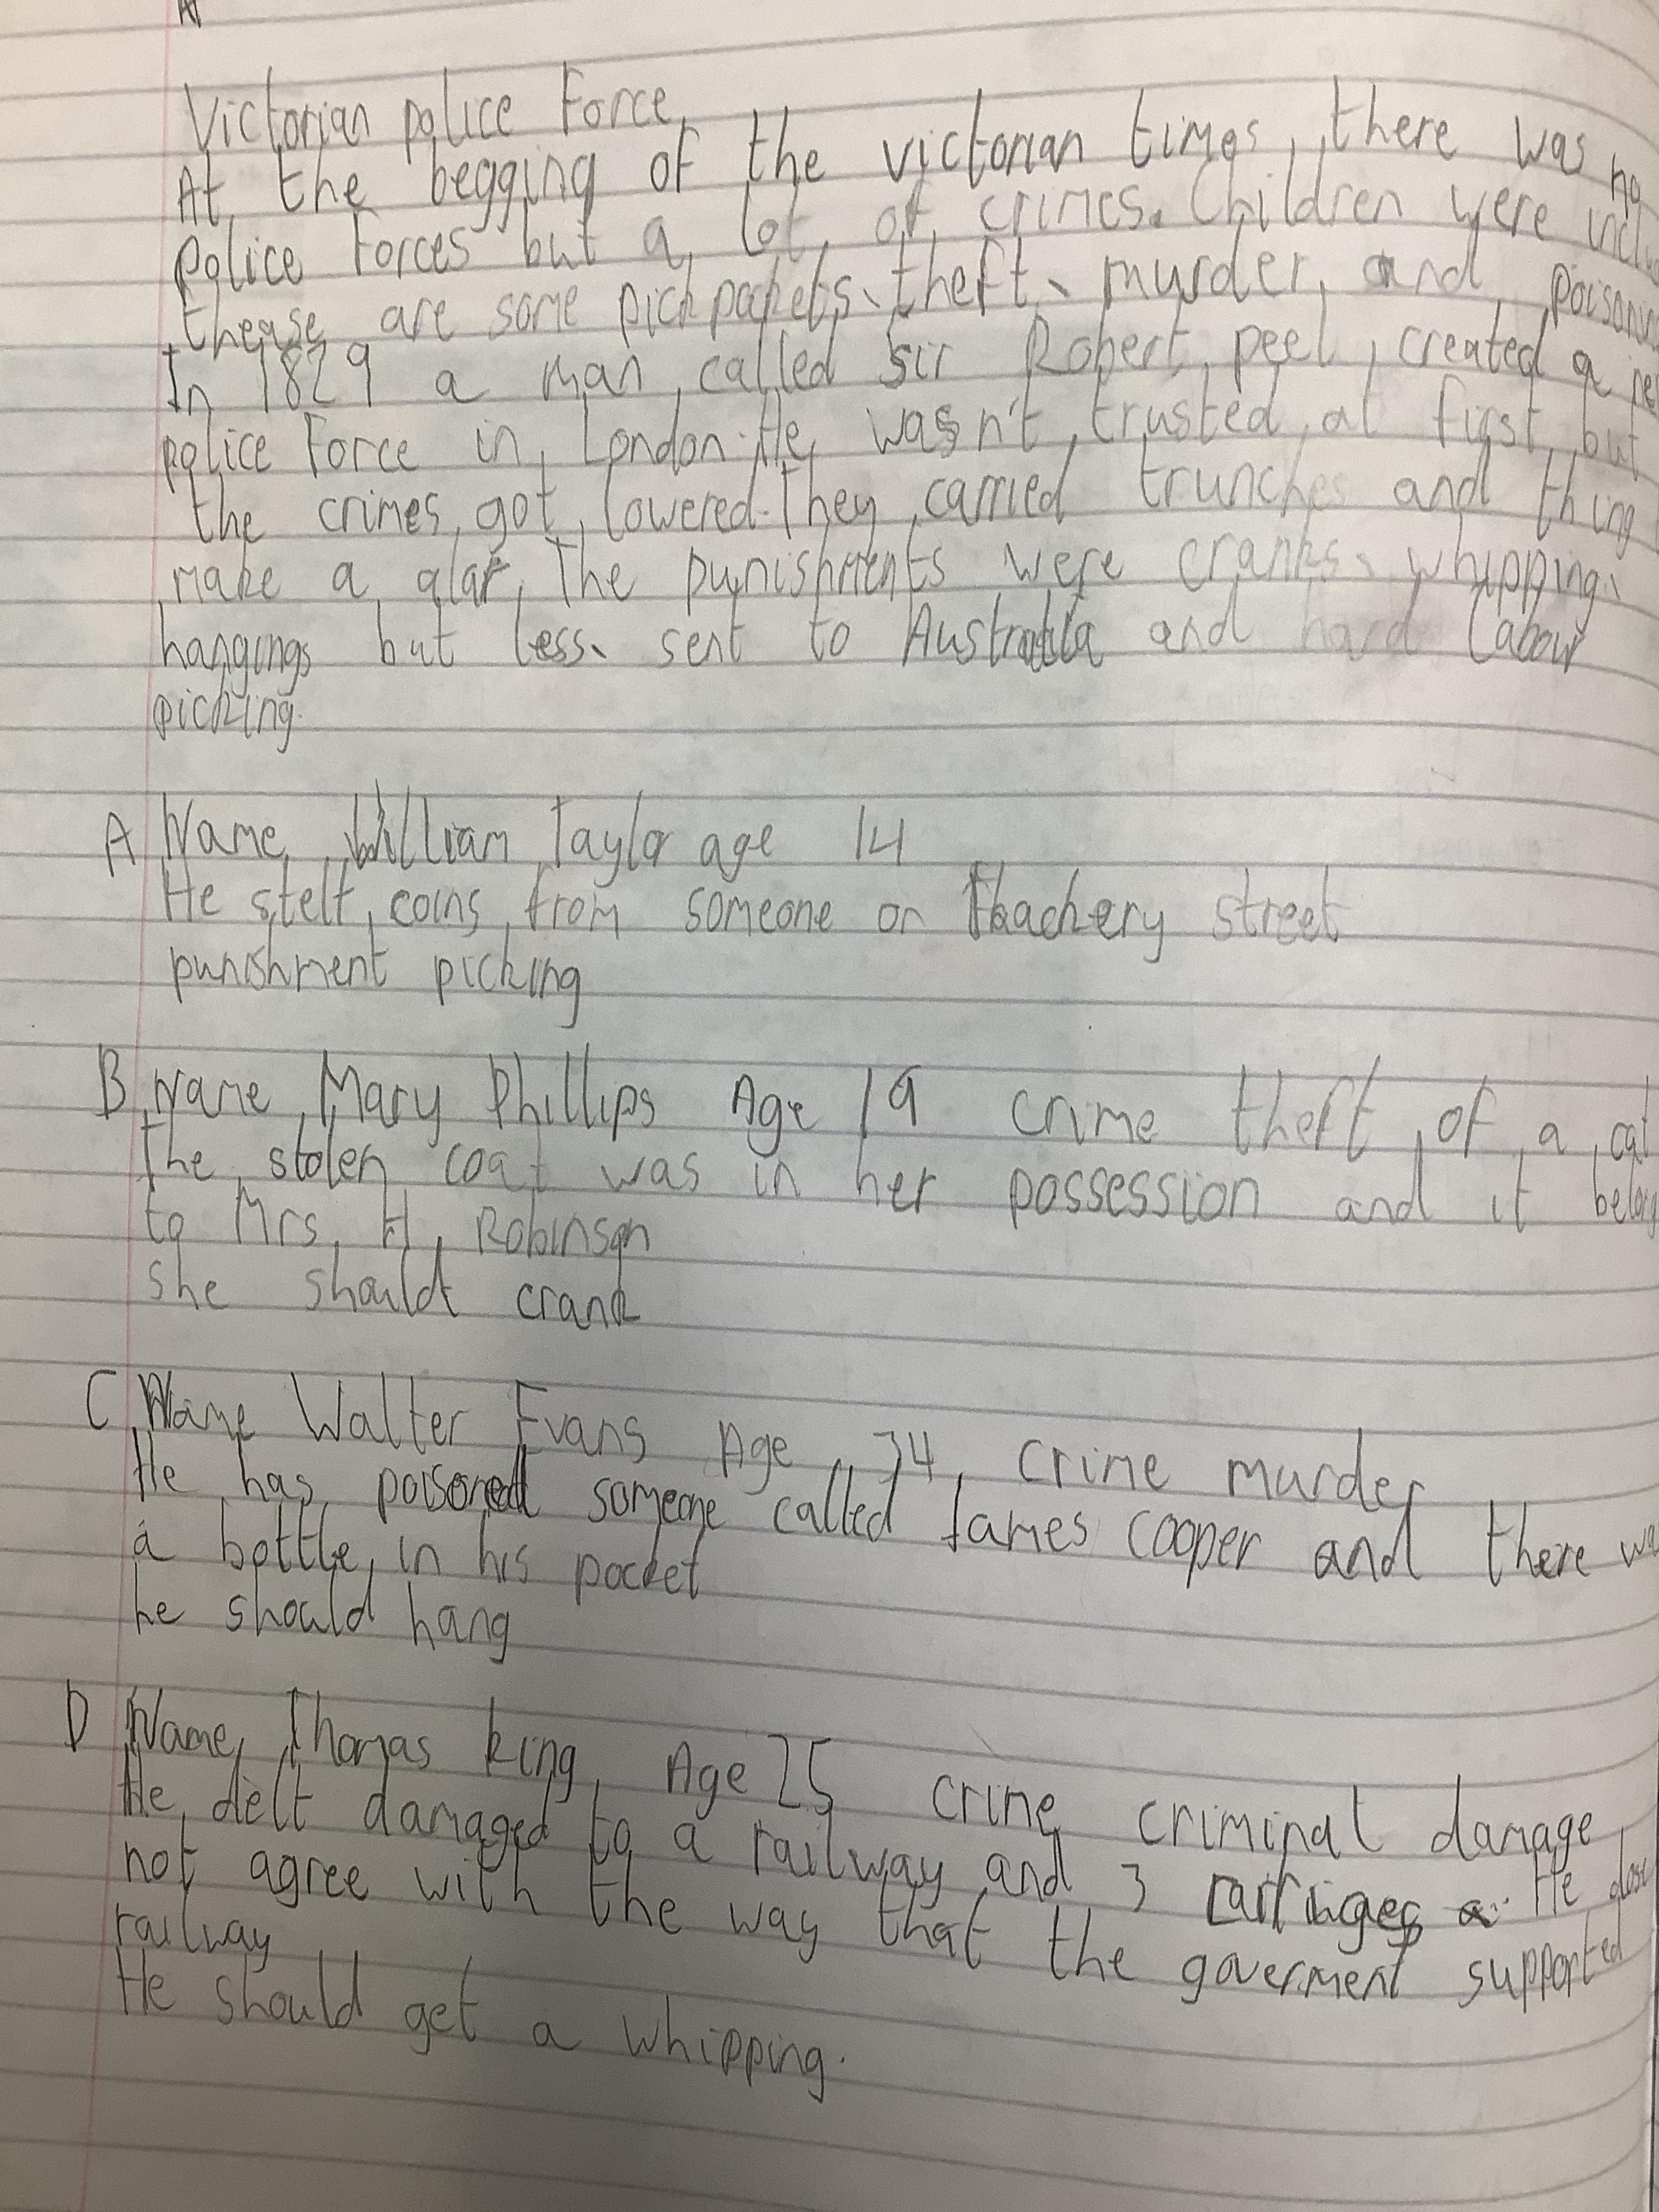 Victorian police Force
At the begging of the victorian times, there was no
police Forces but a lot of crimes. Children were
thease are some pickpockets, theft, murder, and
In 1829 a man called sir Robert peel, created a
police Force in London. He wasn't trusted at first but
the crimes got lowered. They carried trunches and thing
make a alar. The punishments were cranks, whipping,
hangings but less, sent to Australia and hard labour
picking.
A Name William Taylor age 14
He stelt coins from someone on Thachery street
punishment picking
B Name Mary Phillips Age 19 crime theft of a
The stolen coat was in her possession and it
to Mrs H Robinson
she should crank
C Name Walter Evans Age 34 crime murder
He has poisoned someone called James cooper and there
a bottle in his pocket
he should hang
D Name Thomas king Age 25 crime criminal damage
He delt damaged to a railway and 3 He
not agree with the way that the goverment supported
railway
He should get a whipping.